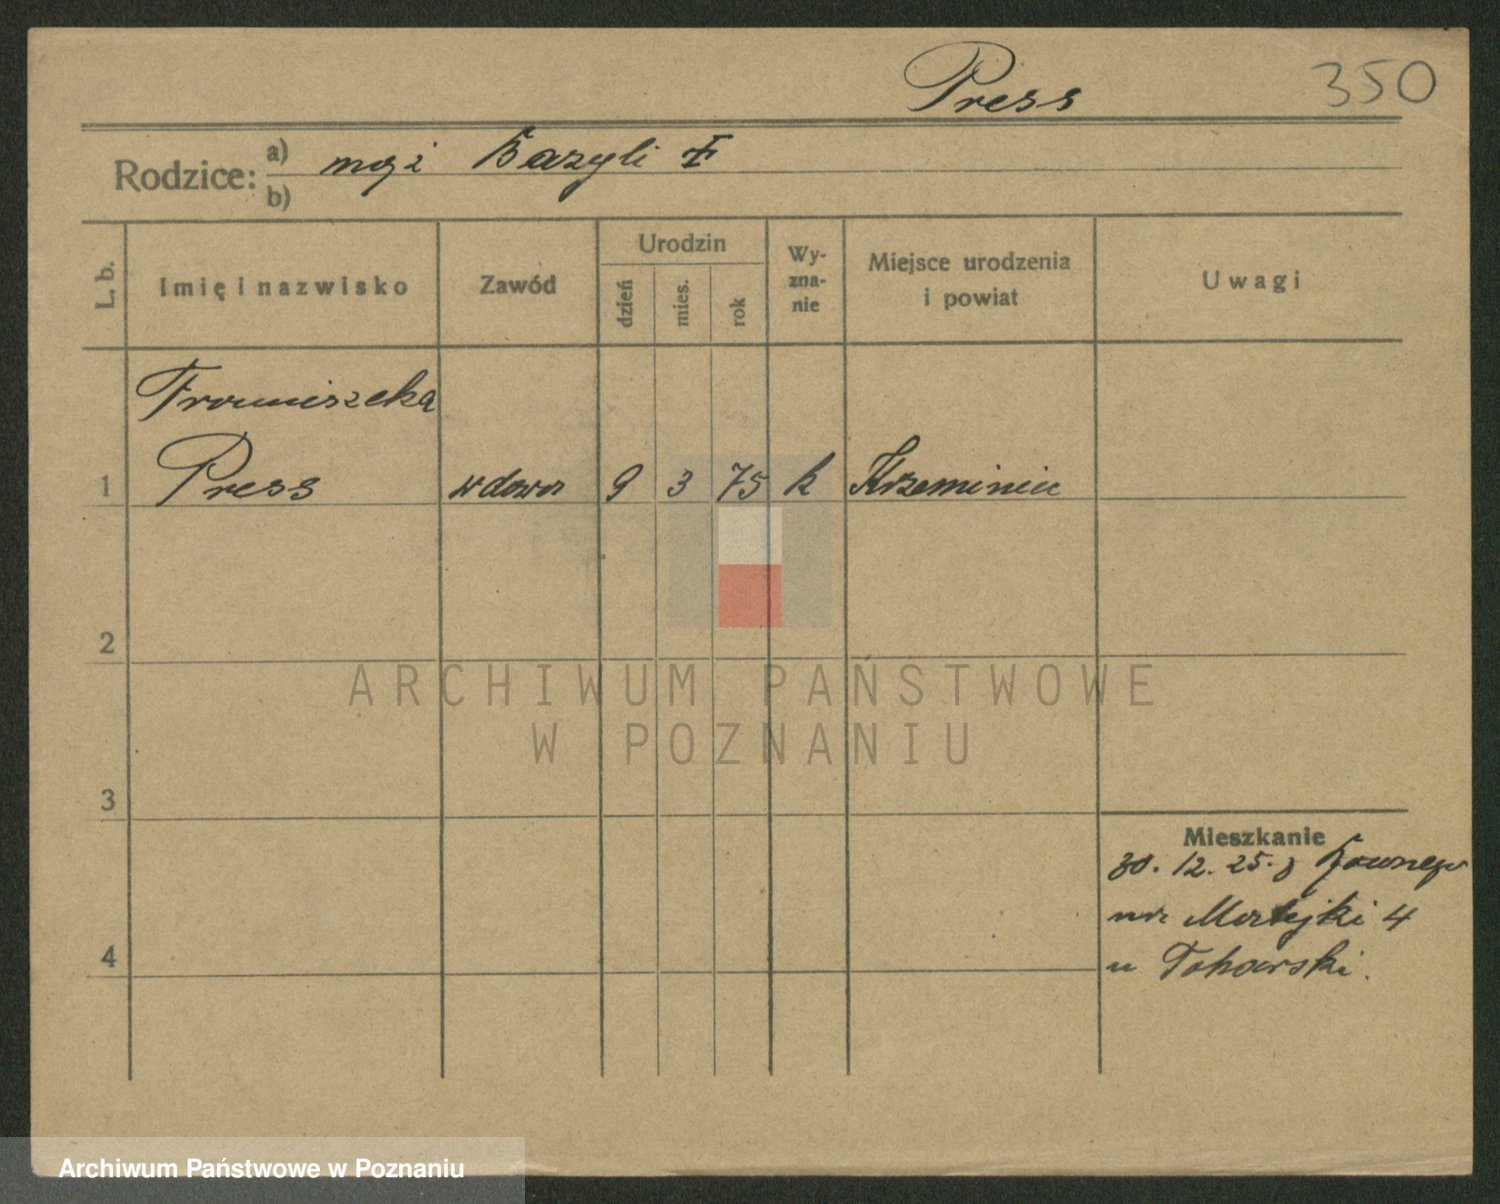 Press
350
Rodzice: a) mąż Bazyli
b)
L. b.
Imię i nazwisko
Zawód
Urodzin
dzień
mies.
rok
Wy-
zna-
nie
Miejsce urodzenia
i powiat
Uwagi
Franciszka
1 Press wdowa 9 3 75 k Krzeminiec
2
3
4
Mieszkanie
30. 12. 25. z Równego
Matejki 4
u
ARCHIWUM PAŃSTWOWE
W POZNANIU
Archiwum Państwowe w Poznaniu